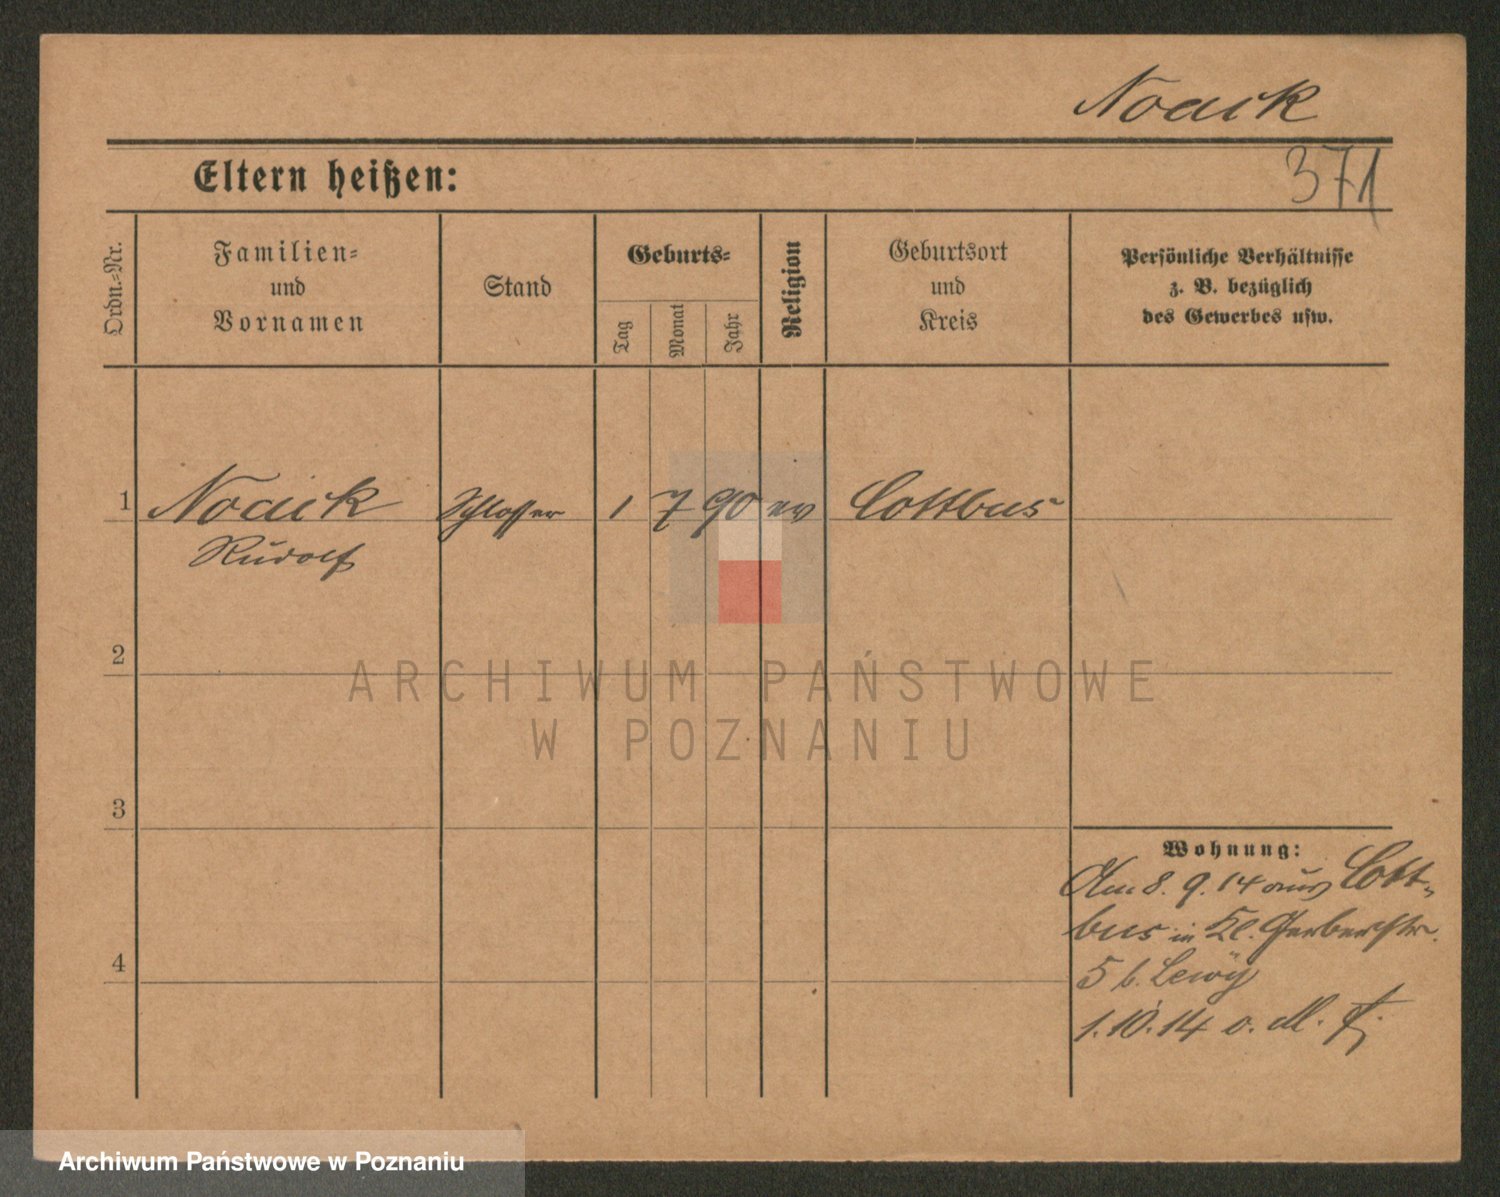 Noack
371
Eltern heißen:
Ordn.-Nr.
Familien-
und
Vornamen
Stand
Geburts-
Tag
Monat
Jahr
Religion
Geburtsort
und
Kreis
Persönliche Verhältnisse
z. B. bezüglich
des Gewerbes usw.
1 Noack Schlosser 1 7 90 ev Cottbus
Rudolf
2
ARCHIWUM PAŃSTWOWE
W POZNANIU
3
Wohnung:
Am 8. 9. 14 aus Cott-
bus in Kl. Gerberstr.
4
5 b. Lewÿ
1.10.14 o. M.
Archiwum Państwowe w Poznaniu